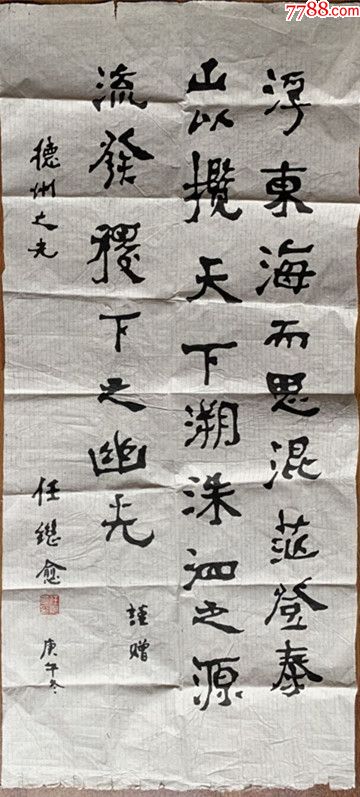 7788.com
浮東海而思混茫登泰
山以攬天下溯洙泗之源
流發稷下之幽光
德州之光
任继愈
謹贈
庚午冬